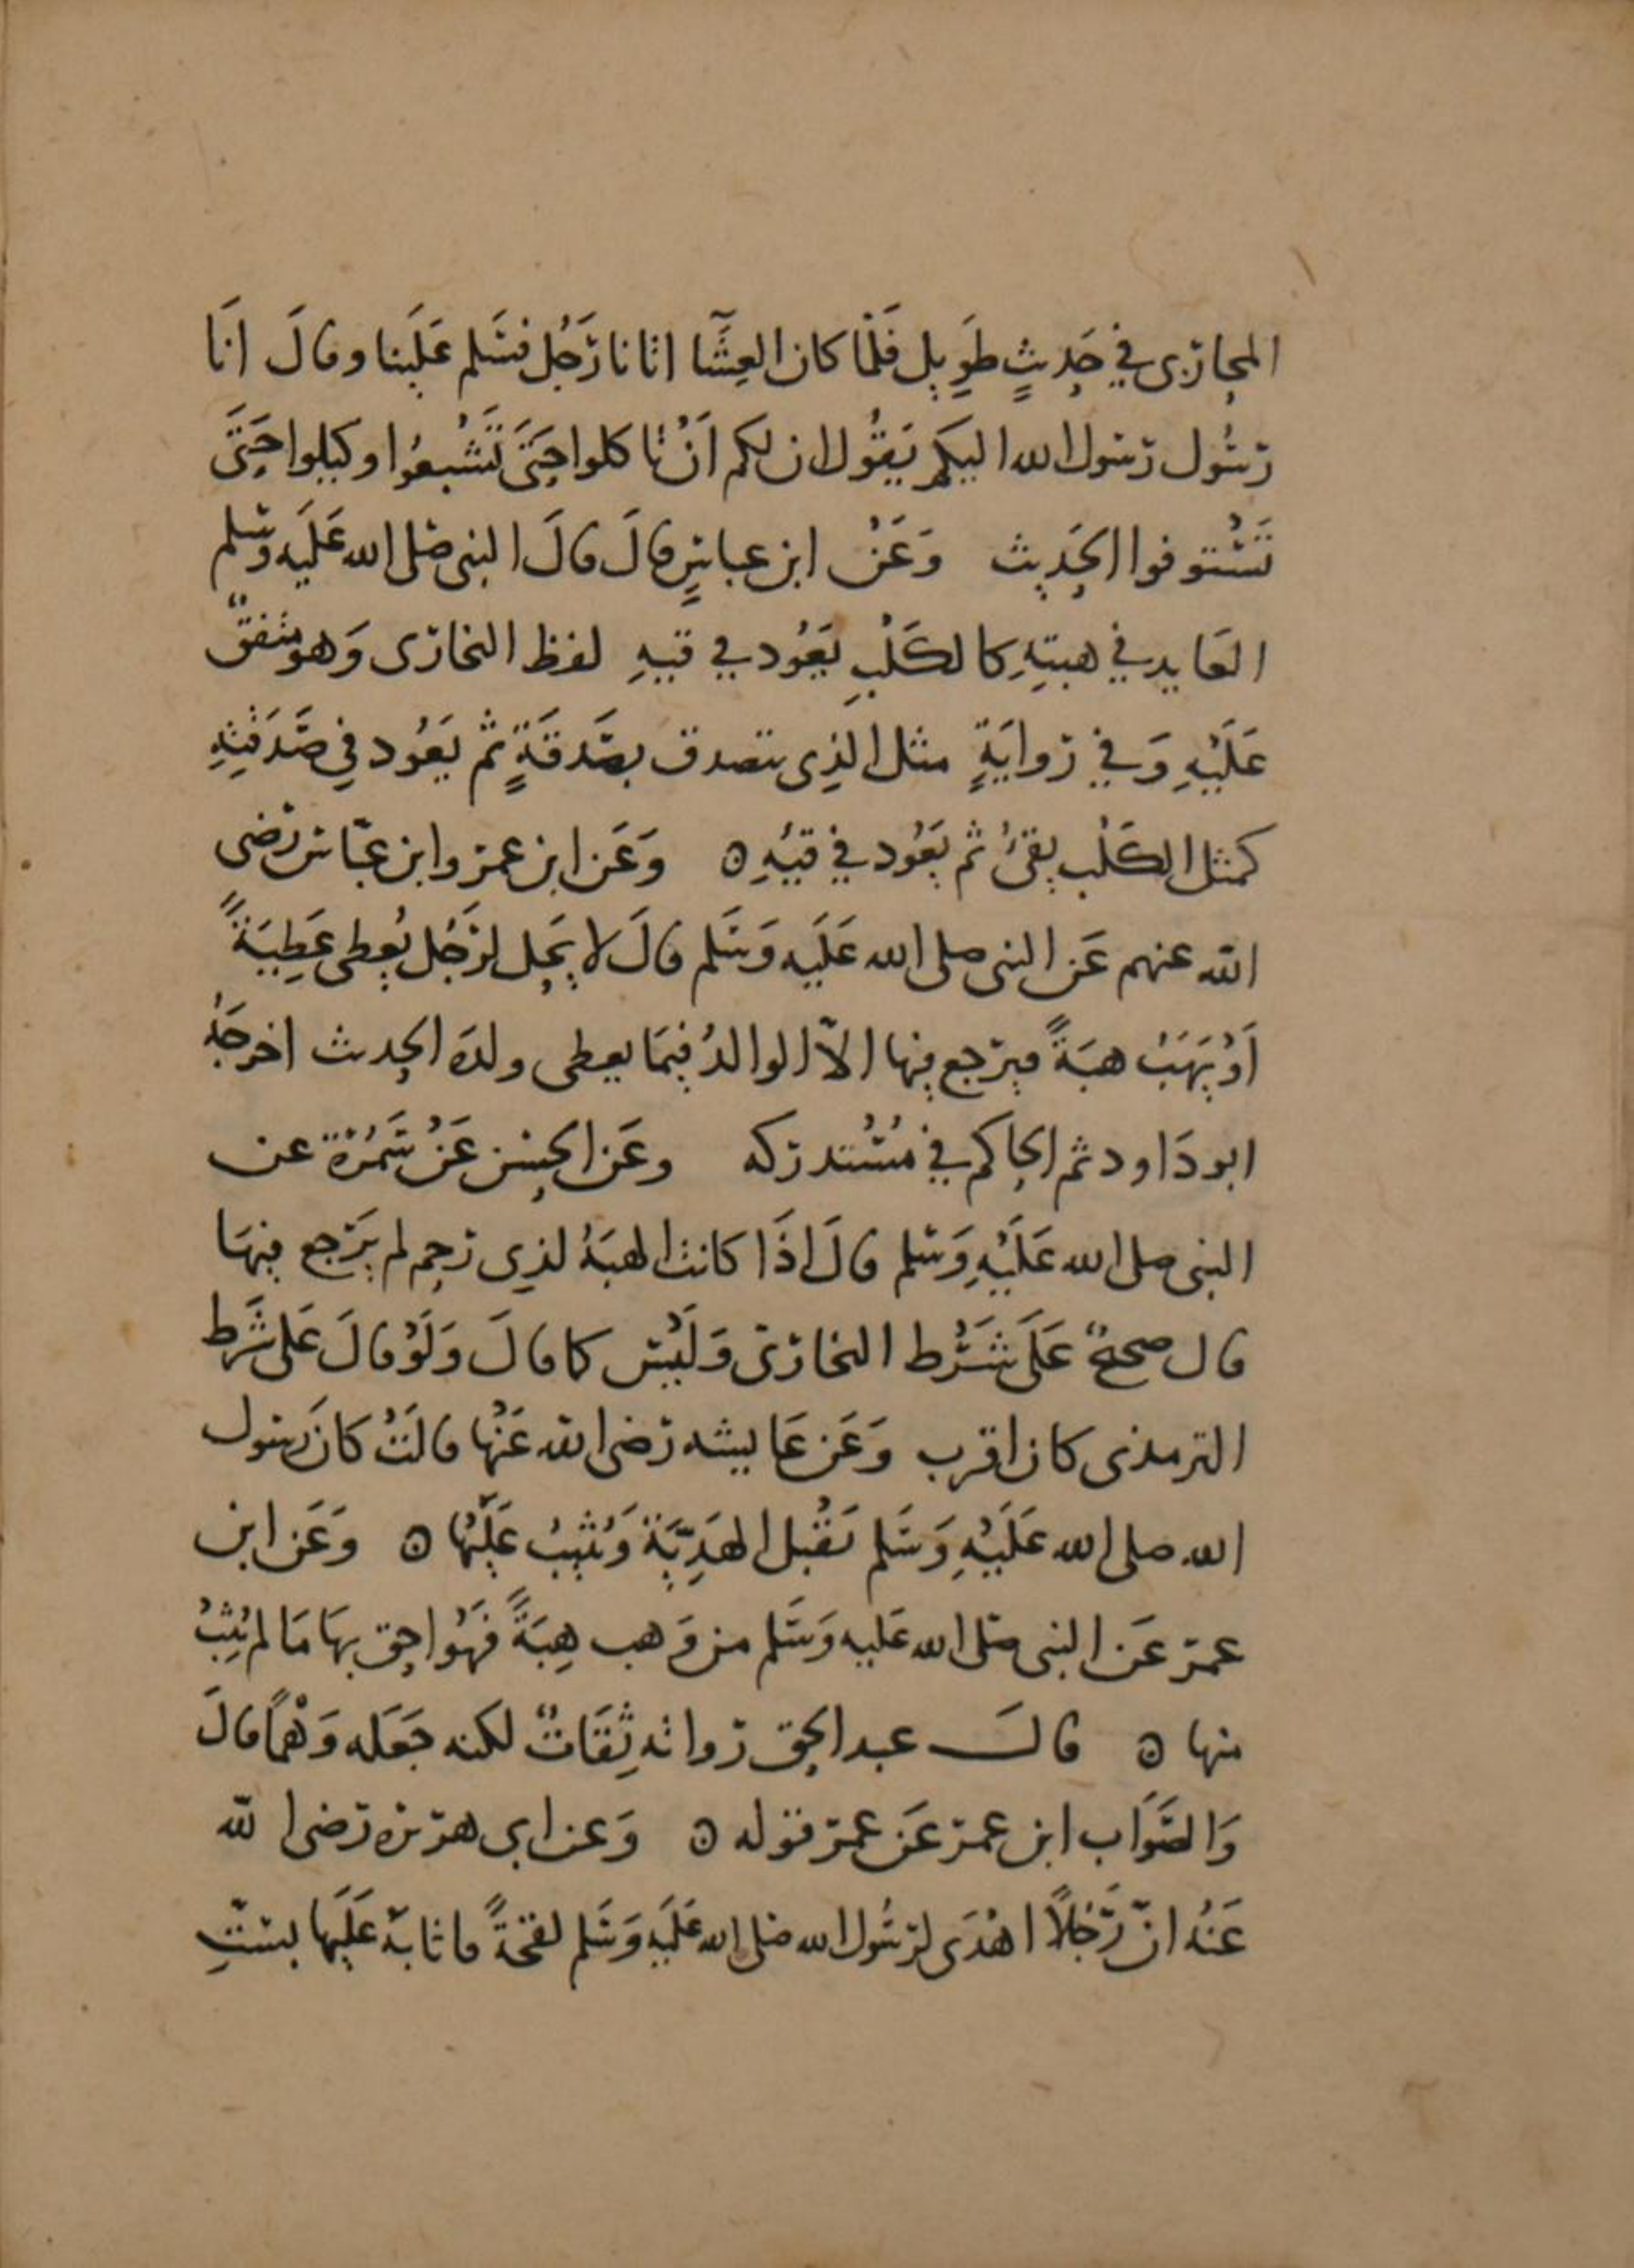 المحاربى في حَدِيثٍ طَوِيل فَلَمّا كان العِشَآ اتانا رَجُل فسَلم عَلَينا وقالَ انَا
رسُول رسول الله اليكم يَقُول ان لكم اَنْ تاكلوا حَتَى تَشْبعُوا وكيلوا حَتَى
تَسْتوفوا الحَديث وَعَنْ ابن عباسٍ قالَ قالَ النبى صَلى الله عَلَيه وسَلم
العَايد في هبتِهِ كالكَلْبِ يَعُود في قيهِ لفظ البخارى وَهو متفقٌ
عَلَيْهِ وَفي رِوايَةٍ مثل الذِى يتصدق بصَدقَةٍ ثم يَعُود في صَدَقتِهِ
كمثل الكَلْب يقئُ ثم يَعُود في قيْهِ ۝ وَعَن ابن عمر وابن عبّاس رَضى
الله عنهم عَن النبى صلى الله عَلَيه وَسَلم قالَ لا يَحِل لرَجُل يُعطى عَطِيَةً
اَوْ يَهَبُ هبَةً فيرَجع فيها الاّ الوالدُ فيمَا يعطى ولدَه الحديث اخرجَهُ
ابو دَاود ثم الحاكم في مُسْتدركه وعَن الحسَن عَنْ سَمُرَة عن
النبى صلى الله عَلَيْهِ وَسَلم قالَ اذَا كانت الهبَةُ لذِى رَحِم لم يَرْجع فيهَا
قال صحيحٌ عَلَى شَرْط البخارى وَلَيْسَ كما قالَ وَلَوْ قالَ عَلى شَرط
الترمذى كان اقرب وَعَن عَايشه رَضى الله عَنْها قالَتْ كانَ رسول
الله صلى الله عَلَيْهِ وَسَلم يَقْبل الهَدِيَّةَ وَيُثيبُ عَلَيْها ۝ وَعَن ابن
عمر عَن النبى صَلى الله عَليه وَسَلم من وَهب هِبَةً فهُوَ احق بهَا مَا لم يُثَبْ
منها ۝ قالَ عبد الحق رواته ثِقَاتٌ لكنه جَعَله وَهْمًا قالَ
وَالصَوَاب ابن عمر عَن عمر قوله ۝ وَعن ابى هريره رَضى الله
عَنْهُ انّ رَجُلاً اهْدَى لرَسُول الله صَلى الله عَلَيه وَسَلم لقحَةً فاثابَهُ عَلَيها بسِتِّ